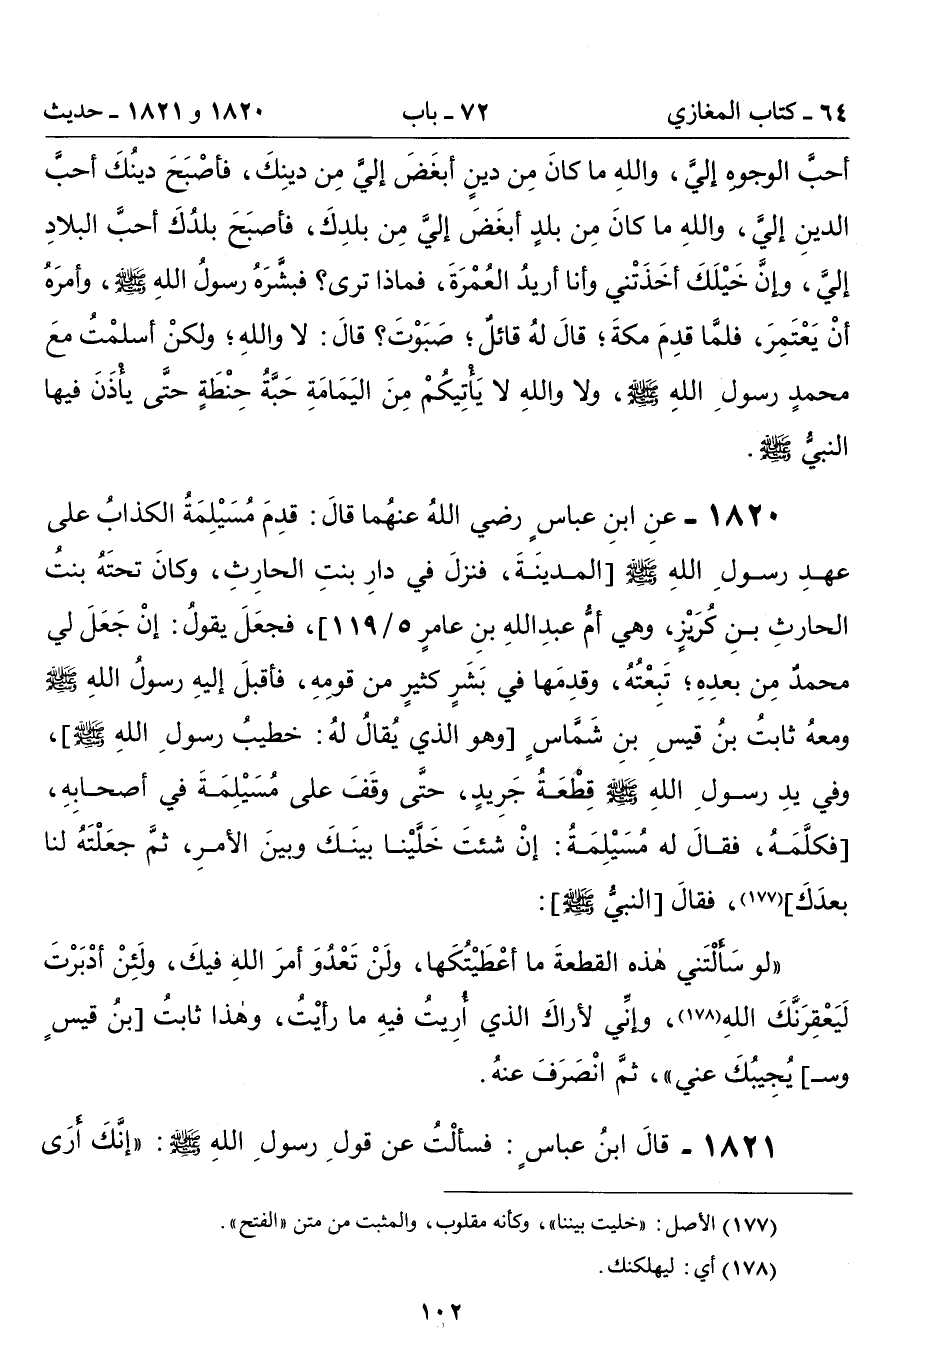 ٦٤ ـ كتاب المغازي ٧٢ ـ باب ١٨٢٠ و ١٨٢١ ـ حديث
أحبَّ الوجوهِ إليَّ، واللهِ ما كانَ مِن دينٍ أبغَضَ إليَّ مِن دينِكَ، فأصْبَحَ دينُكَ أحبَّ
الدينِ إليَّ، واللهِ ما كانَ مِن بلدٍ أبغَضَ إليَّ مِن بلدِكَ، فأصبَحَ بلدُكَ أحبَّ البلادِ
إليَّ، وإنَّ خَيْلَكَ أخَذَتْني وأنا أريدُ العُمْرَةَ، فماذا ترى؟ فبشَّرَهُ رسولُ اللهِ ﷺ، وأمرَهُ
أنْ يَعْتَمِرَ، فلمَّا قدِمَ مكةَ؛ قالَ لهُ قائلٌ؛ صَبَوْتَ؟ قالَ: لا واللهِ؛ ولكنْ أسلمْتُ معَ
محمدٍ رسولِ اللهِ ﷺ، ولا واللهِ لا يَأْتِيكُمْ مِنَ اليَمَامَةِ حَبَّةُ حِنْطَةٍ حتَّى يأْذَنَ فيها
النبيُّ ﷺ.
١٨٢٠ ـ عنِ ابنِ عباسٍ رضي اللهُ عنهُما قالَ: قدِمَ مُسَيْلِمَةُ الكذابُ على
عهدِ رسولِ اللهِ ﷺ [المدينَةَ، فنزلَ في دارِ بنتِ الحارِثِ، وكانَ تحتَهُ بنتُ
الحارثِ بنِ كُرَيْزٍ، وهي أمُّ عبداللهِ بنِ عامرٍ ٥/١١٩]، فجعَلَ يقولُ: إنْ جَعَلَ لي
محمدٌ مِن بعدِهِ؛ تَبِعْتُهُ، وقدِمَها في بَشَرٍ كثيرٍ من قومِهِ، فأقبلَ إليهِ رسولُ اللهِ ﷺ
ومعهُ ثابتُ بنُ قيسِ بنِ شَمَّاسٍ [وهو الذي يُقالُ لهُ: خطيبُ رسولِ اللهِ ﷺ]،
وفي يدِ رسولِ اللهِ ﷺ قِطْعَةُ جَرِيدٍ، حتَّى وقَفَ على مُسَيْلِمَةَ في أصحابِهِ،
[فكلَّمَهُ، فقالَ له مُسَيْلِمَةُ: إنْ شئتَ خَلَّيْنا بينَكَ وبينَ الأمرِ، ثمَّ جعَلْتَهُ لنا
بعدَكَ](١٧٧)، فقالَ [النبيُّ ﷺ]:
«لو سَأَلْتَني هٰذه القطعةَ ما أعْطَيْتُكَها، ولَنْ تَعْدُوَ أمرَ اللهِ فيكَ، ولَئِنْ أدْبَرْتَ
لَيَعْقِرَنَّكَ اللهُ(١٧٨)، وإنِّي لأراكَ الذي أُرِيتُ فيهِ ما رأيْتُ، وهٰذا ثابتُ [بنُ قيسٍ
وسـ] يُجِيبُكَ عني»، ثمَّ انْصَرَفَ عنهُ.
١٨٢١ ـ قالَ ابنُ عباسٍ: فسألْتُ عن قولِ رسولِ اللهِ ﷺ: «إنَّكَ أَرَى
(١٧٧) الأصل: «خليت بيننا»، وكأنه مقلوب، والمثبت من متن «الفتح».
(١٧٨) أي: ليهلكنك.
١٠٢